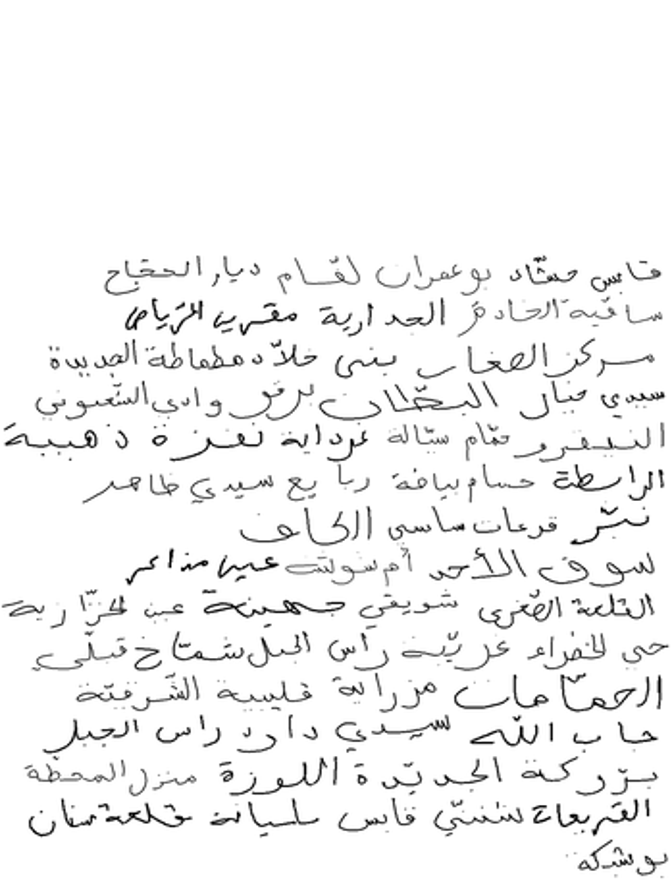 قابس حشّاد بوعمران لقسام ديار الحجّاج
ساقية الخادم الجدارية مقرين الرياض
مركز الصغار بني خلاّد مطماطة الجديدة
سيدي جبال البطّان برقو وادي الشّعبوني
حمّام ستالة غرداية نفزة ذهيبة
الرابطة حسام بياضة ربايع سيدي طاهر
نبّر قرعات ساسي الكاف
سوق الأحد أم شوشة عين مذاكر
القلعة الصّغرى شويقي جهينة عين الخرّازية
حي الخضراء عريّبة راس الجبل شمتاخ قبلّي
الحمّامات مزراية قليبية الشّرفيّة
جاب اللّه سيدي داود راس الجبل
بزّركة الجديّدة اللوزة منزل المحطّة
القريعات شننّي قابس سليانة قلعة سنان
بوشبكة